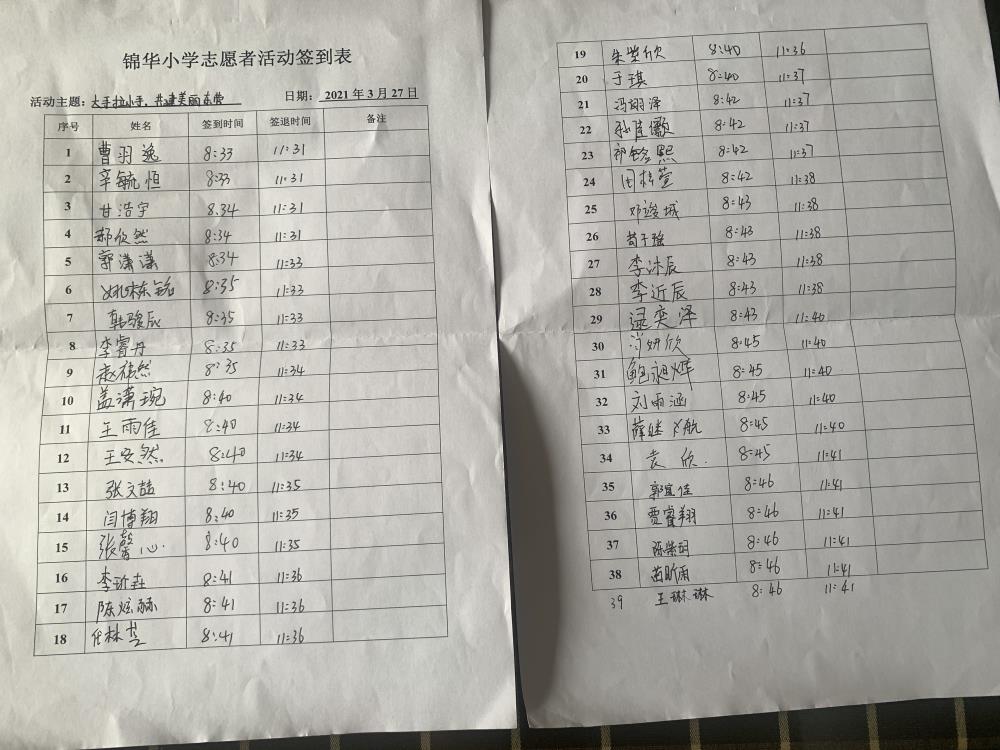 锦华小学志愿者活动签到表
活动主题：大手拉小手，共建美丽东营 日期：2021年3月27日
序号 姓名 签到时间 签退时间 备注
1 曹羽逸 8:33 11:31
2 辛毓恒 8:33 11:31
3 甘浩宇 8:34 11:31
4 郝俊然 8:34 11:31
5 郭潇潇 8:34 11:33
6 姚栋铭 8:35 11:33
7 韩骏辰 8:35 11:33
8 李睿丹 8:35 11:33
9 赵然 8:35 11:34
10 孟潇琬 8:40 11:34
11 王雨佳 8:40 11:34
12 王安然 8:40 11:34
13 张文喆 8:40 11:35
14 闫博翔 8:40 11:35
15 张馨心 8:40 11:35
16 李垚 8:41 11:36
17 陈炫赫 8:41 11:36
18 任林 8:41 11:36
19 朱紫欣 8:40 11:36
20 于琪 8:40 11:37
21 冯翊泽 8:42 11:37
22 孙佳灏 8:42 11:37
23 祁熙 8:42 11:37
24 田梓萱 8:42 11:38
25 邓竣城 8:43 11:38
26 苟子雅 8:43 11:38
27 李沐辰 8:43 11:38
28 李近辰 8:43 11:38
29 逯奕泽 8:43 11:40
30 妍欣 8:45 11:40
31 鲍昶烨 8:45 11:40
32 刘雨涵 8:45 11:40
33 薛继航 8:45 11:40
34 袁欣 8:45 11:41
35 郭宜佳 8:46 11:41
36 贾睿翔 8:46 11:41
37 陈荣 8:46 11:41
38 苗昕雨 8:46 11:41
39 王琳琳 8:46 11:41